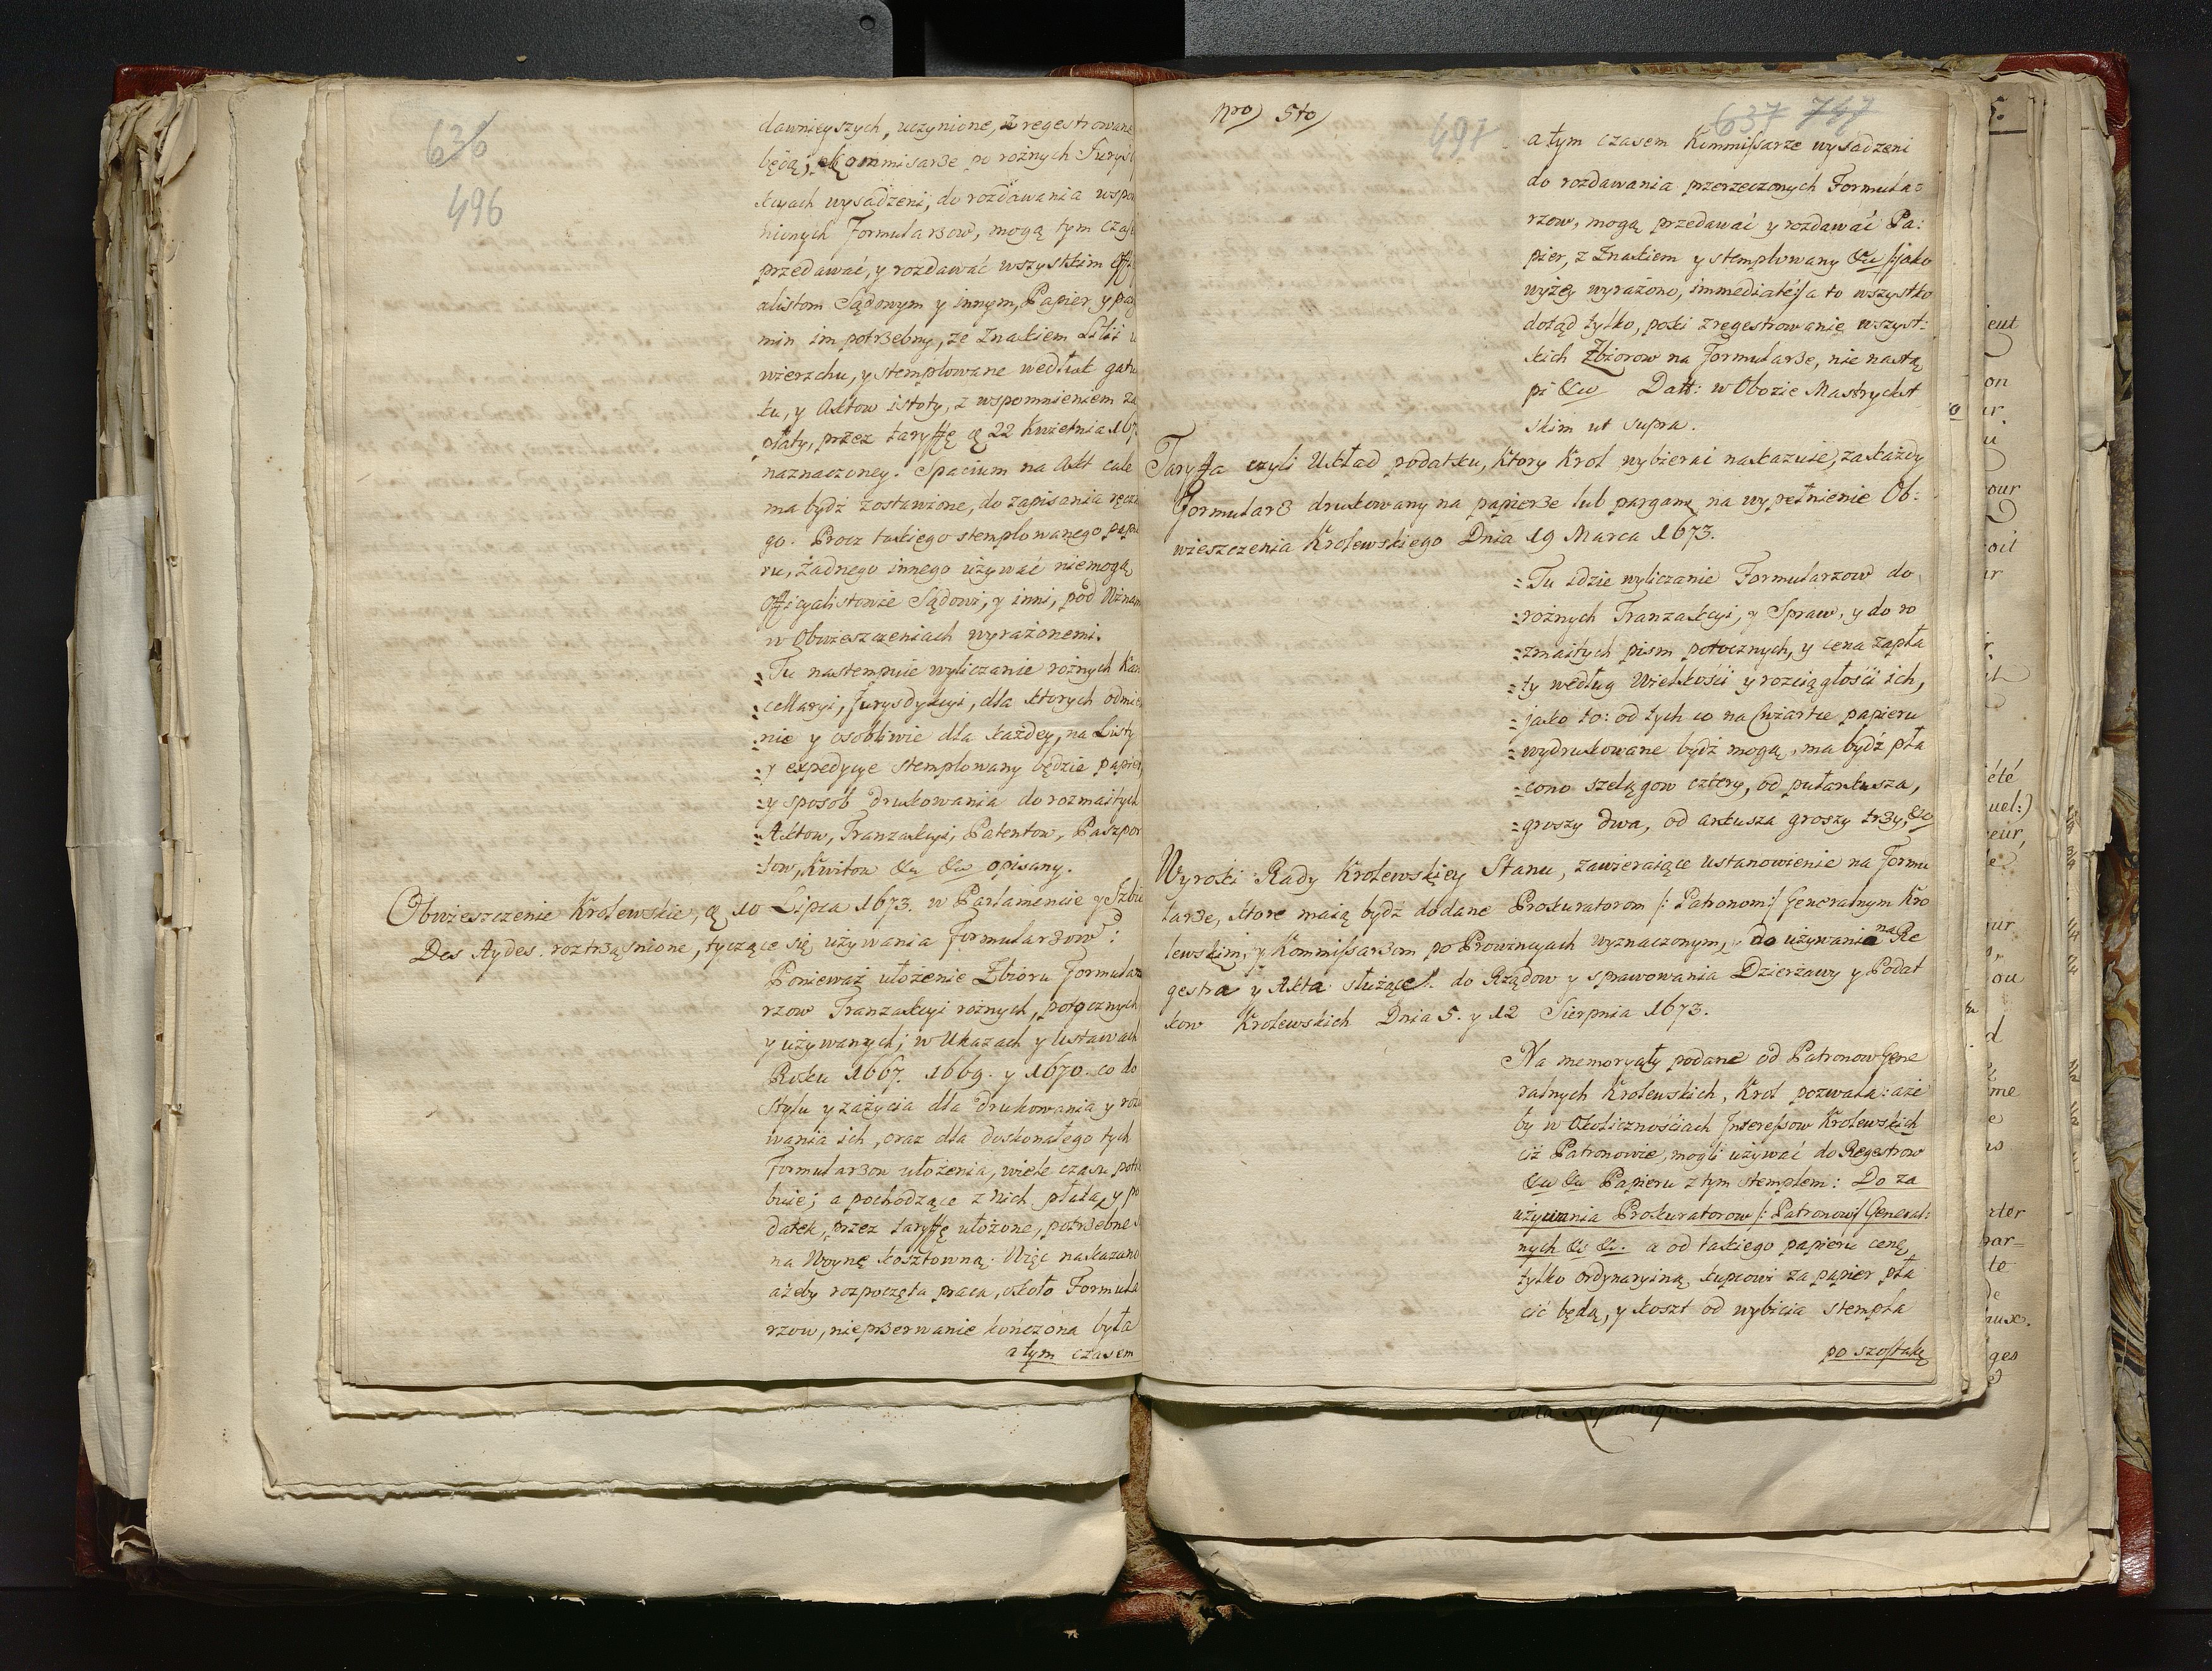 636
496
dawnieyszych, uczynione, zregestrowane
będą; Kommisarze po rożnych Juryśd
kcyach wysadzeni, do rozdawania wspo
nionych Formularzow, mogą tym czas
przedawać, y rozdawać wszystkim Offi
alistom Sądowym y innym, Papier y par
min im potrzebny, ze Znakiem Lilii
wierzchu, y stemplowane wedłuk gatu
ku, y Aktow istoty, z wspomnieniem za
płaty, przez taryffę d. 22 Kwietnia 167
naznaczoney. Spacium na Akt cale
ma bydź zostawzone, do zapisania ręczn
go. Procz takiego stemplowanego papie
ru, żadnego innego używać niemogą
Officyalistowie Sądowi, y inni, pod Winam
w Obwieszczeniach wyrażonemi.
Tu nastempuie wyliczanie rożnych Kan
cellaryi, Jurysdykcyi, dla ktorych odmie
nie y osobliwie dla każdey, na Listy
y expedycye stemplowany będzie papier,
y sposob drukowania do rozmaitych
Aktow, Tranzakcyi, Patentow, Paszpor
tow, Kwitow &c &c opisany.
Obwieszczenie Krolewskie, d. 10 Lipca 1673. w Parlamencie y Izbie
Des Aydes. roztrząśnione, tyczące się używania Formularzow:
Ponieważ ułożenie Zbioru Formula
rzow Tranzakcyi rożnych, potocznych
y używanych; w Ukazach y Ustawach
Roku 1667. 1669. y 1670. co do
Stylu y zażycia dla drukowania y roz
wania ich, oraz dla doskonałego tych
Formularzow ułożenia, wiele czasu potrz
buie; a pochodzące z nich płata, y po
datek, przez taryffę ułożone, potrzebne s
na Woynę kosztowną. Więc nakazano
ażeby rozpoczęta praca, około Formula
rzow, nieprzerwanie kończona była
a tym czasem
Nro) 5to)
497
637 747
a tym czasem Kommissarze wysadzeni
do rozdawania przerzeczonych Formula=
rzow, mogą przedawać y rozdawać Pa:
pier, z Znakiem y stemplowany &c /:jako
wyżey wyrażono, immediaté:/ a to wszystko
dotąd tylko, poki zregestrowanie wszyst:
kich Zbiorow na Formularze, nie nastą
pi &c Datt: w Obozie Mastrycht
skim ut supra.
Taryffa czyli Układ podatku, ktory Krol wybierać nakazuie, za każdy
Formularz drukowany na papierze lub pargamę na wypełnienie Ob:
wieszczenia Krolewskiego Dnia 19 Marca 1673.
Tu idzie wyliczanie Formularzow do
rożnych Tranzakcyi, y Spraw, y do ro
zmaitych pism potocznych, y cena zapła
ty według Wielkości y rozciągłości ich,
jako to: od tych co na Cwiartce papieru
wydrukowane bydź mogą, ma bydź pła
cono szelągow cztery, od pułarkusza,
groszy dwa, od arkusza groszy trzy, &c
Wyroki Rady Krolewskiey Stanu, zawieraiące ustanowienie na Formu
larze, ktore maią bydź dodane Prokuratorom /: Patronom:/ Generalnym Kro
lewskim, y Kommissarzom po Prowincyach wyznaczonym, do używania na Re
gestra y Akta służące do Rządow y sprawowania Dzierżawy y Podat
kow Krolewskich Dnia 5. y 12 Sierpnia 1673.
Na memoryały podane od Patronow Gene
ralnych Krolewskich, Krol pozwala: aże
by w Okolicznościach Interessow Krolewskich
ciż Patronowie, mogli używać do Regestrow
&c &c Papieru z tym stemplem: Do za
używania Prokuratorow /: Patronow:/ General:
nych &c &c. a od takiego papieru cenę
tylko ordynaryiną, kupcowi za papier pła
cić będą, y koszt od wybicia stempla
po szostaku